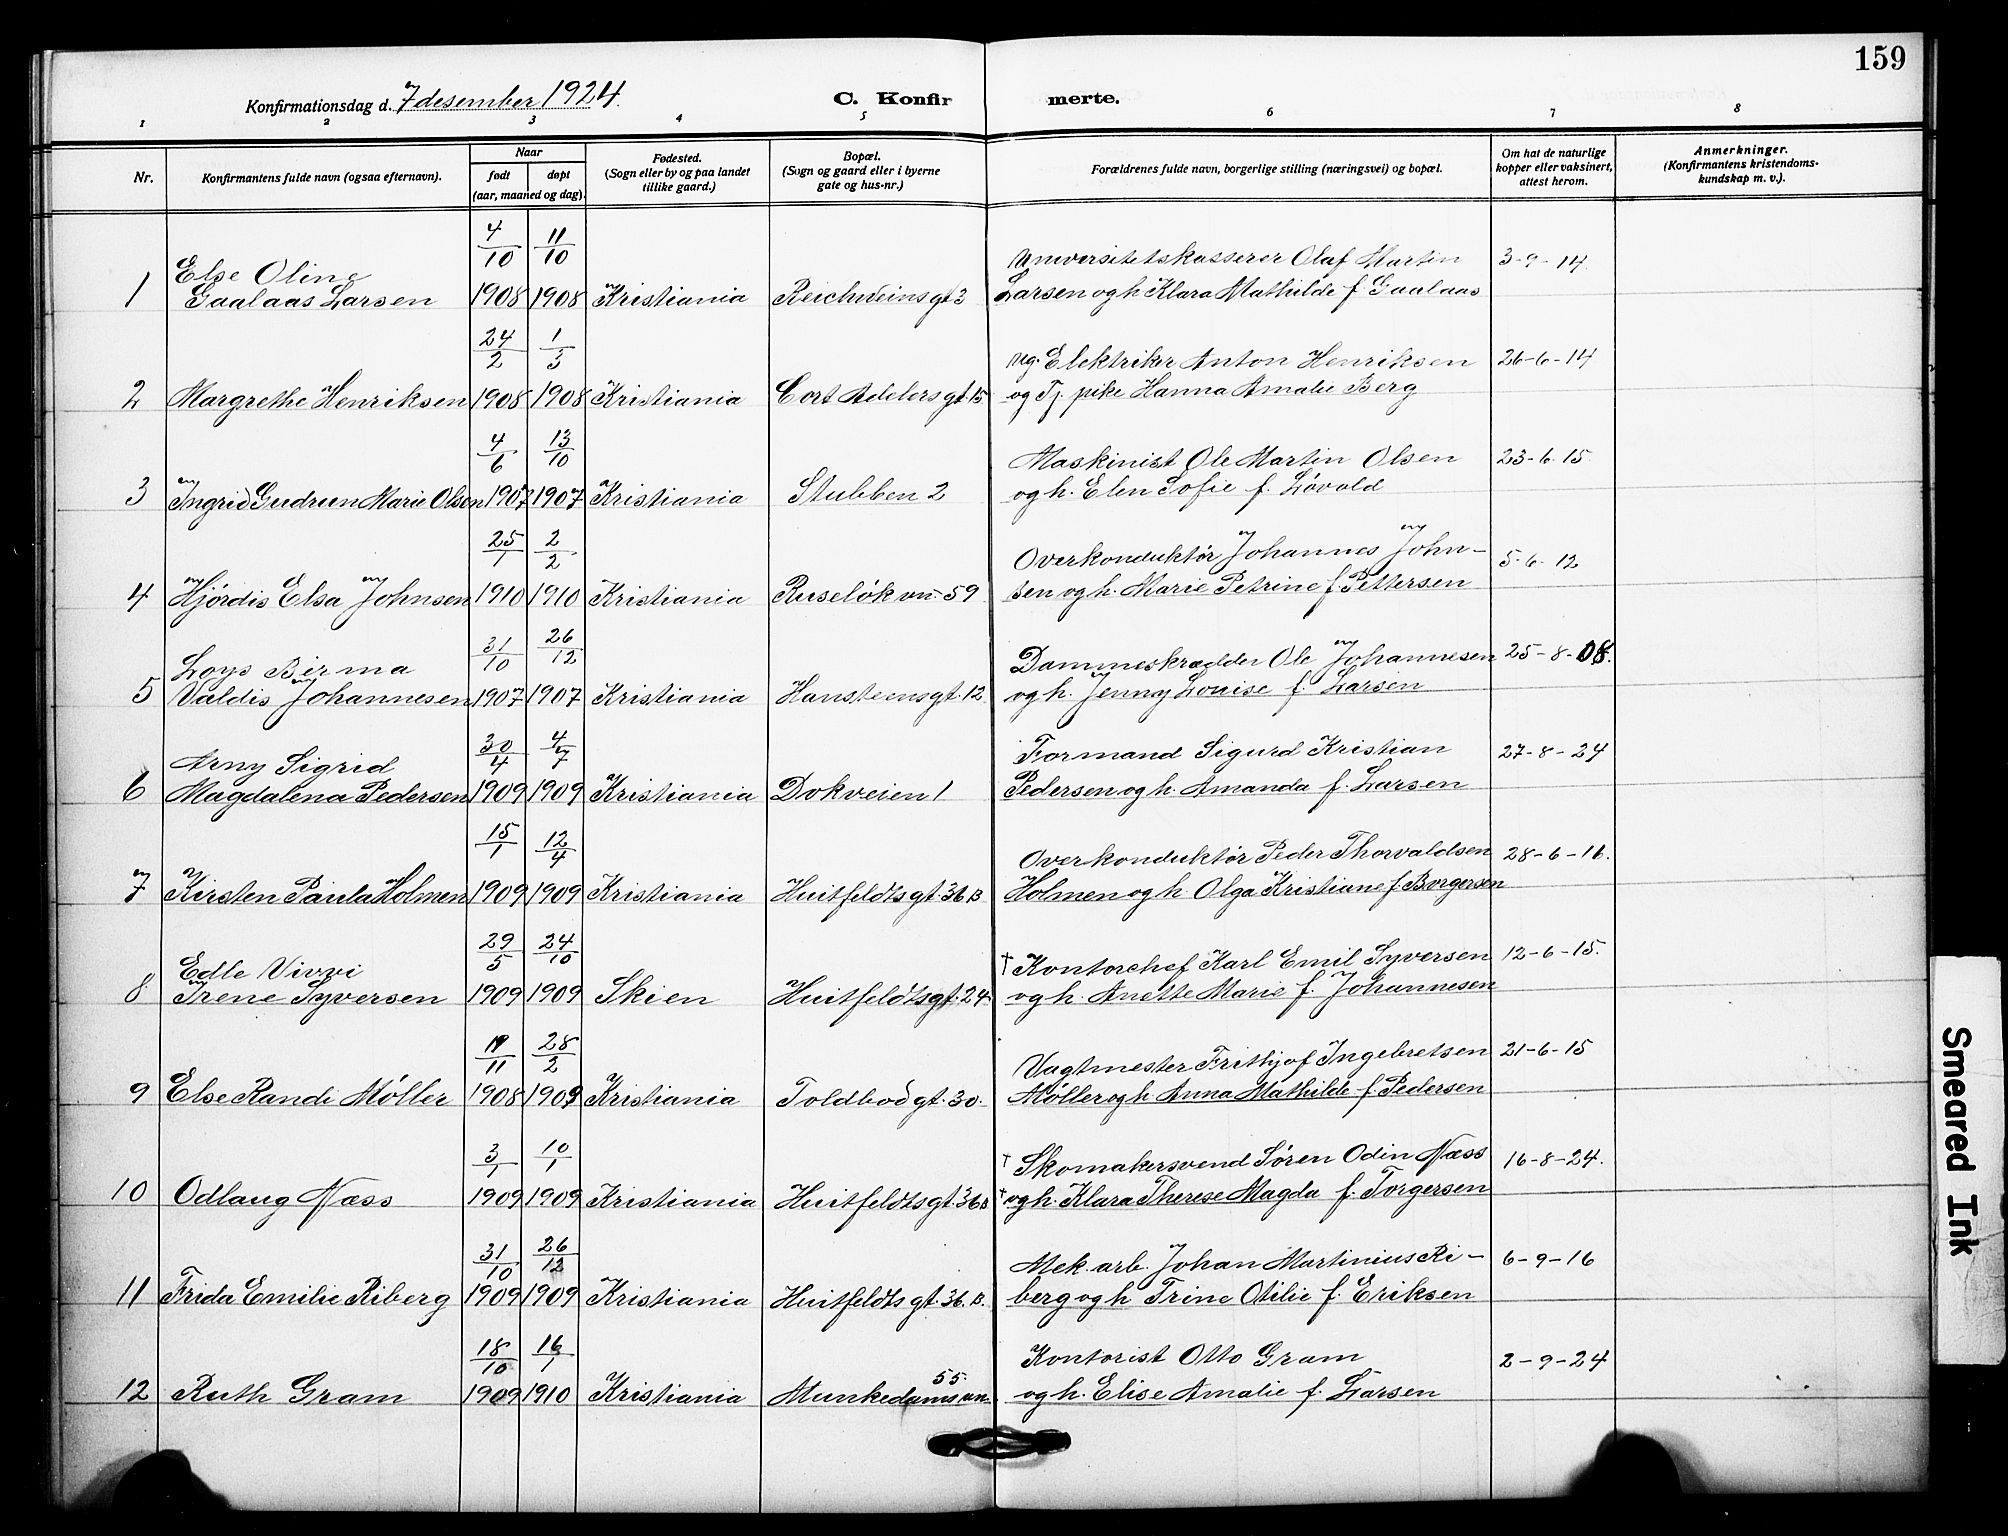 159
Konfirmationsdag d. 7 desember 1924.
C. Konfir merte.
1 2 3 4 5 6 7 8
Nr.
Konfirmantens fulde navn (ogsaa efternavn).
Naar
født døpt
(aar, maaned og dag).
Fødested.
(Sogn eller by og paa landet
tillike gaard.)
Bopæl.
(Sogn og gaard eller i byerne
gate og hus-nr.)
Forældrenes fulde navn, borgerlige stilling (næringsvei) og bopæl.
Om hat de naturlige
kopper eller vaksinert,
attest herom.
Anmerkninger.
(Konfirmantens kristendoms-
kundskap m. v.).
4/10 11/10
Else Oline Universitetskasserer Olaf Martin 3-9-14
1 Gaalaas Larsen 1908 1908 Kristiania Reichweinsgt 3 Larsen og h Klara Mathilde f. Gaalaas
24/2 1/3
ug. Elektriker Anton Henriksen 26-6-14
2 Margrethe Henriksen 1908 1908 Kristiania Cort Adelersgt. 15 og Tj. pike Hanna Amalie Berg
4/6 13/10
Maskinist Ole Martin Olsen 23-6-15
3 Ingrid Gudrun Marie Olsen 1907 1907 Kristiania Stubben 2 og h. Elen Sofie f. Løvold
25/1 2/2
Overkonduktør Johannes John- 5-6-12
4 Hjørdis Elsa Johnsen 1910 1910 Kristiania Ruseløkvn. 59 sen og h. Marie Petrine f. Pettersen
31/10 26/12
Loys Birma Dammeskrædder Ole Johannesen 25-8-08.
5 Valdis Johannesen 1907 1907 Kristiania Hansteensgt. 12 og h. Jenny Louise f. Larsen
30/4 4/7
Arny Sigrid Formand Sigurd Kristian 27-8-24
6 Magdalena Pedersen 1909 1909 Kristiania Dokveien 1 Pedersen og h. Amanda f. Larsen
15/1 12/4
Overkonduktør Peder Thorvaldsen 28-6-16.
7 Kirsten Paula Holmen 1909 1909 Kristiania Huitfeldtsgt. 36 B Holmen og h. Olga Kristiane f. Borgersen
29/5 24/10
Edle Vivvi † Kontorchef Karl Emil Syversen 12-6-15.
8 Irene Syversen 1909 1909 Skien Huitfeldtsgt. 24. og h. Anette Marie f. Johannesen
19/11 28/2
Vagtmester Frithjof Ingebretsen 21-6-15
9 Else Randi Møller 1908 1909 Kristiania Toldbodgt. 30. Møller og h. Anna Mathilde f. Pedersen
3/1 10/1
† Skomakersvend Søren Odin Næss 16-8-24.
10 Odlaug Næss 1909 1909 Kristiania Huitfeldtsgt. 36 B † og h. Klara Therese Magda f. Torgersen
31/10 26/12
Mek. arb. Johan Martinius Ri- 6-9-16
11 Frida Emilie Riberg 1909 1909 Kristiania Huitfeldtsgt. 36. B. berg og h Trine Otilie f. Eriksen
18/10 16/1
Kontorist Otto Gram 2-9-24
55.
12 Ruth Gram 1909 1910 Kristiania Munkedamsvn. og h. Elise Amalie f. Larsen
Smeared Ink